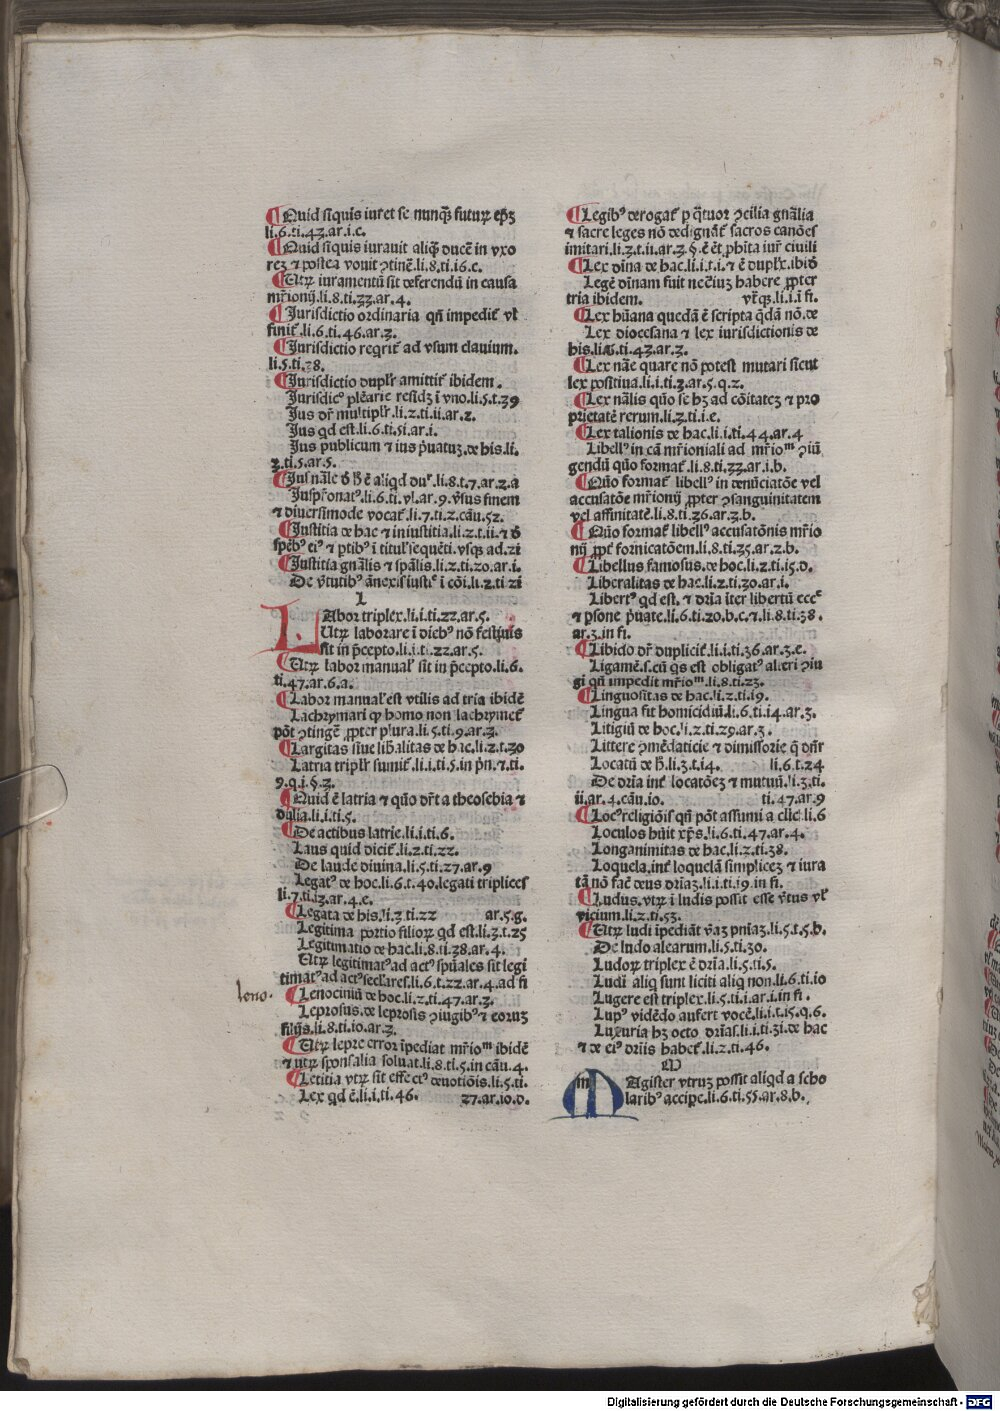 ¶Quid siquis iuret se nunqꝫ futuꝝ ep̄ꝫ
li.6.ti.43.ar.i.c.
¶Quid siquis iurauit aliqꝫ ducē in vxo
reꝫ ⁊ postea vouit ꝯtinē.li.8.ti.i6.c.
¶Utꝝ iuramentū sit deferendū in causa
mr̄ionij.li.8.ti.33.ar.4.
¶Jurisdictio ordinaria qn̄ impedit᷑ vl̓
finit᷑.li.6.ti.46.ar.3.
¶Jurisdictio reqrit᷑ ad vsum clauium.
li.5.ti.38.
¶Jurisdictio duplr̓ amittit᷑ ibidem.
Jurisdicꝰ plēarie residꝫ ī vno.li.5.t.39
Jus dr̄ multiplr̓.li.2.ti.ii.ar.2.
Jus qd est.li.6.ti.5i.ar.i.
Jus publicum ⁊ ius p̄uatuꝫ.de his.li.
3.ti.5.ar.5.
¶Jus nāle ꝺ̄ h̄ ē aliqd duꝰ.li.8.t.7.ar.2.a
Juspr̄onatꝰ.li.6.ti.vl.ar.9.v̄sus finem
⁊ diuersimode vocat᷑.li.7.ti.2.cāu.52.
¶Justitia de hac ⁊ iniustitia.li.2.t.ii.⁊ ꝺ̄
sp̄ebꝰ eiꝰ ⁊ ptibꝰ ī titul̓ sequēti.vsqꝫ ad.2i
¶Justitia gn̄alis ⁊ spālis.li.2.ti.20.ar.i.
De v̄tutibꝰ ānexis iustic̄ ī cōi.li.2.ti 2i
L
LAbor triplex.li.i.ti.22.ar.5.
Utꝝ laborare ī diebꝰ nō festiuis
sit in p̄cepto.li.i.ti.22.ar.5.
¶Utꝝ labor manual̓ sit in p̄cepto.li.6.
ti.47.ar.6.a.
¶Labor manual̓ est vtilis ad tria ibidē
Lachrymari qp homo non lachrymet᷑
pōt ꝯtingē ꝓpter plura.li.5.ti.9.ar.3.
¶Largitas siue lib̄alitas de hac.li.2.t.30
Latria triplr̓ sumit᷑.li.i.ti.5.in pn̄.⁊ ti.
9.q.i.§.2.
¶Quid ē latria ⁊ quō dr̄t a theosebia ⁊
dulia.li.i.ti.5.
¶De actibus latrie.li.i.ti.6.
Laus quid dicit᷑.li.2.ti.22.
De laude diuina.li.5.ti.27.ar.9
Legatꝰ de hoc.li.6.t.40.legati triplices
li.7.ti.i3.ar.4.e.
¶Legata de his.li.3.ti.22 ar.5.g.
Legitima portio filioꝝ qd est.li.3.t.25
Legitimatio de hac.li.8.ti.38.ar.4.
Utꝝ legitimatꝰ ad actꝰ spūales sit legi
timatꝰ ad actꝰ sec̄lares.li.6.t.22.ar.4.ad fi
leno.
¶Lenociniū de hoc.li.2.ti.47.ar.3.
Leprosus.de leprosis ꝯiugibꝰ ⁊ eorum
filijs.li.8.ti.io.ar.3.
¶Utꝝ lepre error īpediat mr̄ioᵐ ibidē
⁊ utꝝ sponsalia soluat.li.8.ti.5.in cāu.4.
¶Letitia vtꝝ sit effectꝰ deuotiōis.li.5.ti.
Lex qd ē.li.i.ti.46. 27.ar.io.d.
¶Legibꝰ derogat᷑ p qͣtuor ꝯcilia gn̄alia
⁊ sacre leges nō dedignāt᷑ sacros canōes
imitari.li.3.t.ii.ar.3.§.ē ēt ꝓhīta iur̓ ciuili
¶Lex dīna de hac.li.i.t.i.⁊ ē duplx.ibid
Legē dīnam fuit neccīuꝫ habere ꝓpter
tria ibidem. vtꝝqꝫ.li.i.ī fi.
¶Lex hūana quedā ē scripta qdā nō.de
Lex diocesana ⁊ lex iurisdictionis de
his.li.6.ti.43.ar.3.
¶Lex nāe quare nō potest mutari sicut
lex positiua.li.i.ti.3.ar.5.q.2.
¶Lex nālis quō se hꝫ ad cōitateꝫ ⁊ pro
prietatē rerum.li.3.ti.i.e.
¶Lex talionis de hac.li.i.ti.44.ar.4
Libellꝰ in cā mr̄ioniali ad mr̄ioᵐ ꝯiū
gendū quō format᷑.li.8.ti.33.ar.i.b.
¶Quō format᷑ libellꝰ in denūciatōe vel
accusatōe mr̄ionij ꝓpter ꝯsanguinitatem
vel affinitatē.li.8.ti.36.ar.3.b.
¶Quō format᷑ libellꝰ accusatōnis mr̄io
nij ꝓpt᷑ fornicatōem.li.8.ti.35.ar.2.b.
¶Libellus famosus.de hoc.li.2.ti.i5.d.
Liberalitas de hac.li.2.ti.30.ar.i.
Libertꝰ qd est.⁊ dr̄ia īter libertū eccē
⁊ psone p̄uate.li.6.ti.20.b.c.⁊.li.8.ti.38.
ar.3.in fi.
¶Libido dr̄ duplicit᷑.li.i.ti.36.ar.3.c.
Ligamē.s.cū qs est obligatꝰ alteri ꝯiu
gi qn̄ impedit mr̄ioᵐ.li.8.ti.23.
¶Linguositas de hac.li.2.ti.i9.
Lingua fit homicidiū.li.6.ti.i4.ar.3.
Litigiū de hoc.li.2.ti.29.ar.3.
Littere ꝯmēdaticie ⁊ dimissorie q̄ dn̄r
Locatū de h̄.li.3.t.i4. li.6.t.24
De dr̄ia int᷑ locatōeꝫ ⁊ mutuū.li.3.ti.
ii.ar.4.cāu.io. ti.47.ar.9
¶Locꝰ religiōis qn̄ pōt assumi a clic̄.li.6
Loculos hūit xp̄s.li.6.ti.47.ar.4.
Longanimitas de hac.li.2.ti.38.
Loquela.int᷑ loquelā simpliceꝫ ⁊ iura
tā nō fac̄ deus dr̄iaꝫ.li.i.ti.i9.in fi.
¶Ludus.vtꝝ ī ludis possit esse v̄tus vl̓
vicium.li.2.ti.53.
¶Utꝝ ludi īpediāt v̄aꝫ pniaꝫ.li.5.t.5.b.
De ludo alearum.li.5.ti.30.
Ludoꝝ triplex ē dr̄ia.li.5.ti.5.
Ludi aliq sunt liciti aliq non.li.6.ti.io
Lugere est triplex.li.5.ti.i.ar.i.in fi.
Lupꝰ vidēdo aufert vocē.li.i.t.i5.q.6.
Luxuria hꝫ octo dr̄ias.li.i.ti.3i.de hac
⁊ de eiꝰ dr̄iis habet᷑.li.2.ti.46.
M
MAgister vtruꝫ possit aliqd a scho
laribꝰ accipe.li.6.ti.55.ar.8.b.
Digitalisierung gefördert durch die Deutsche Forschungsgemeinschaft - DFG